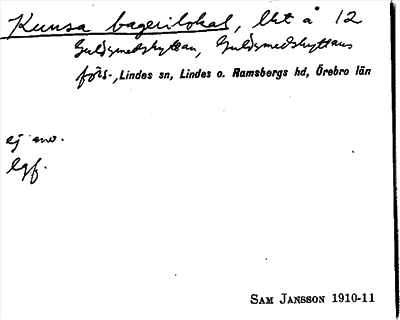 Kunsa bagerilokal, lht å 12
Guldsmedshyttan, Guldsmedshyttans
förs., Lindes sn, Lindes o. Ramsbergs hd, Örebro län
ej anv.
lgf.
SAM JANSSON 1910-11